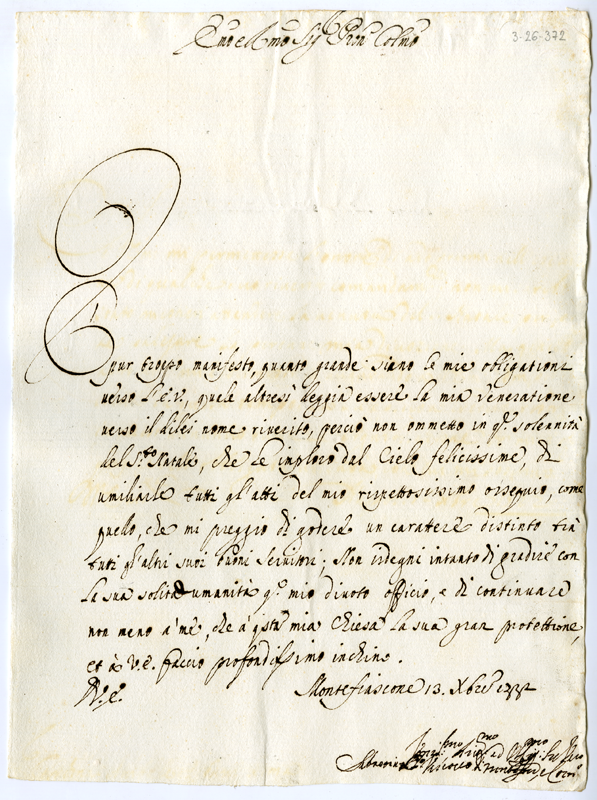 3-26-372
È pur troppo manifesto, quanto grande siano le mie obligationi
verso l'E.V., quale altresì deggia essere la mia veneratione
verso il di lei nome riverito, perciò non ommetto in q.ta solennità
del S.to Natale, che le imploro dal Cielo felicissime, di
umiliarle tutti gl'atti del mio rispettosissimo ossequio, come
quello, che mi preggio di godere un caratere distinto trà
tuti gl'altri suoi buoni servitori; Non isdegni intanto di gradire con
la sua solita umanità q.o mio divoto officio, e di continuare
non meno à me, che à q.sta mia Chiesa la sua gran protettione,
et à V.E. faccio profondissimo inchino.
D. V. E.
Montefiascone 13. Xbre